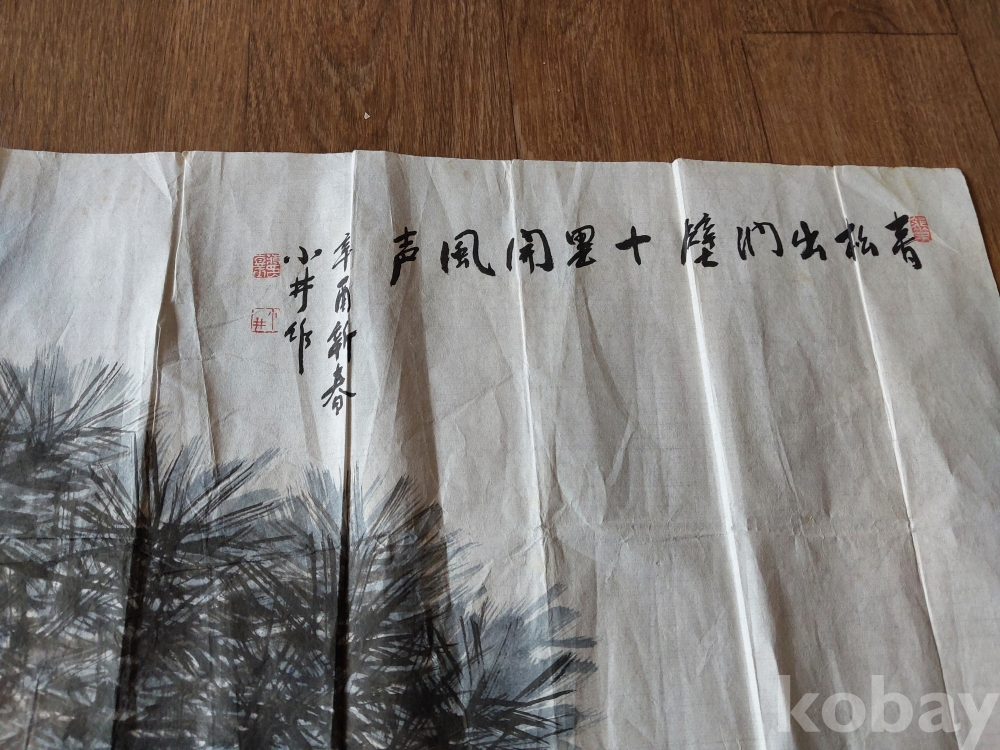 青松出澗壑十里聞風声
辛酉新春
小井作
小井
kobay